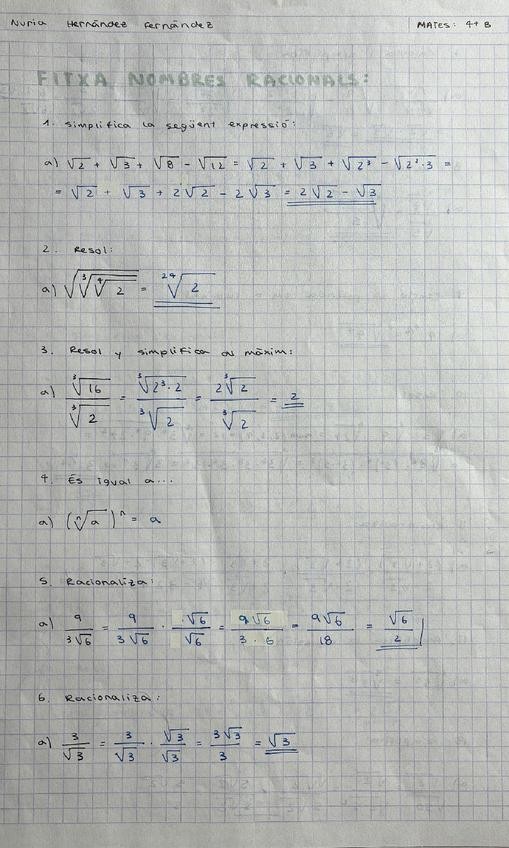 Nuria Hernández Fernández MATES: 4t B
FITXA NOMBRES RACIONALS:
1. Simplifica la següent expressió:
a) √2 + √3 + √8 - √12 = √2 + √3 + √2³ - √2²·3 =
= √2 + √3 + 2√2 - 2√3 = 2√2 - √3
2. Resol:
a) √∛∜2 = ²⁴√2
3. Resol y simplifica al màxim:
a) ∛16 / ∛2 = ∛2³·2 / ∛2 = 2∛2 / ∛2 = 2
4. És igual a...
a) (ⁿ√a)ⁿ = a
5. Racionaliza:
a) 9 / 3√6 = 9 / 3√6 · √6 / √6 = 9√6 / 3·6 = 9√6 / 18 = √6 / 2
6. Racionaliza:
a) 3 / √3 = 3 / √3 · √3 / √3 = 3√3 / 3 = √3